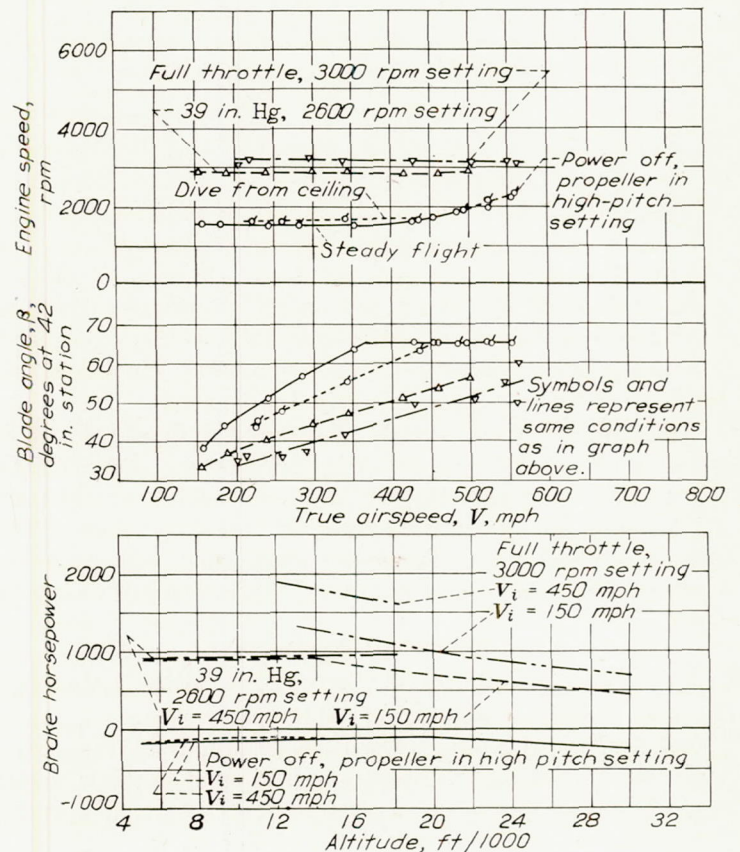 Engine speed,
rpm
6000
4000
2000
0
Full throttle, 3000 rpm setting
39 in. Hg, 2600 rpm setting
Dive from ceiling
Steady flight
Power off,
propeller in
high-pitch
setting
Blade angle, β,
degrees at 42
in. station
70
60
50
40
30
Symbols and
lines represent
same conditions
as in graph
above.
100 200 300 400 500 600 700 800
True airspeed, V, mph
Brake horsepower
2000
1000
0
-1000
Full throttle,
3000 rpm setting
Vi = 450 mph
Vi = 150 mph
39 in. Hg,
2600 rpm setting
Vi = 450 mph Vi = 150 mph
Power off, propeller in high pitch setting
Vi = 150 mph
Vi = 450 mph
4 8 12 16 20 24 28 32
Altitude, ft/1000